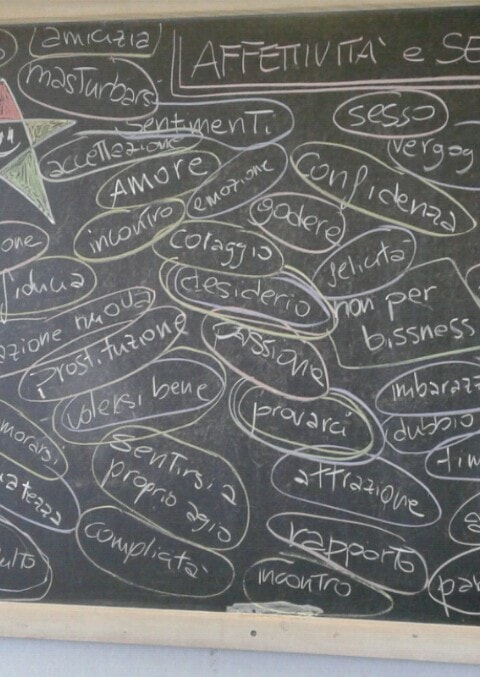 amicizia
AFFETTIVITÀ e SE
masturbarsi
sentimenti
sesso
accettazione
vergog
AMORE
emozione
confidenza
incontro
godere
one
coraggio
felicità
fiducia
desiderio
non per
bissness
azione nuova
prostituzione
passione
volersi bene
imbaraz
provarci
dubbio
morarsi
tim
sentirsi a
proprio agio
attrazione
atezza
complicità
rapporto
ulto
incontro